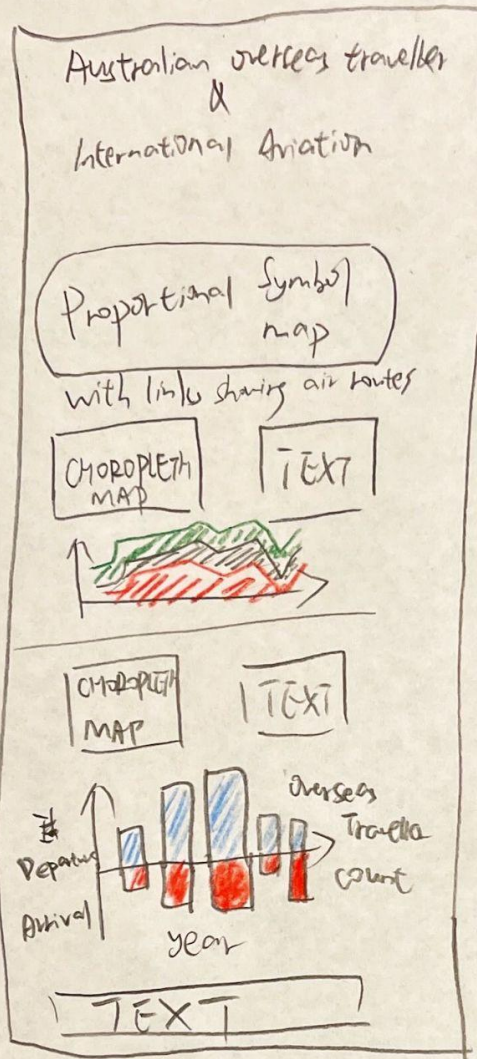 Australian overseas traveller
&
International Aviation
Proportional Symbol
map
with links showing air routes
CHOROPLETH
MAP
TEXT
CHOROPLETH
MAP
TEXT
overseas
Traveller
count
#
Departure
Arrival
year
TEXT